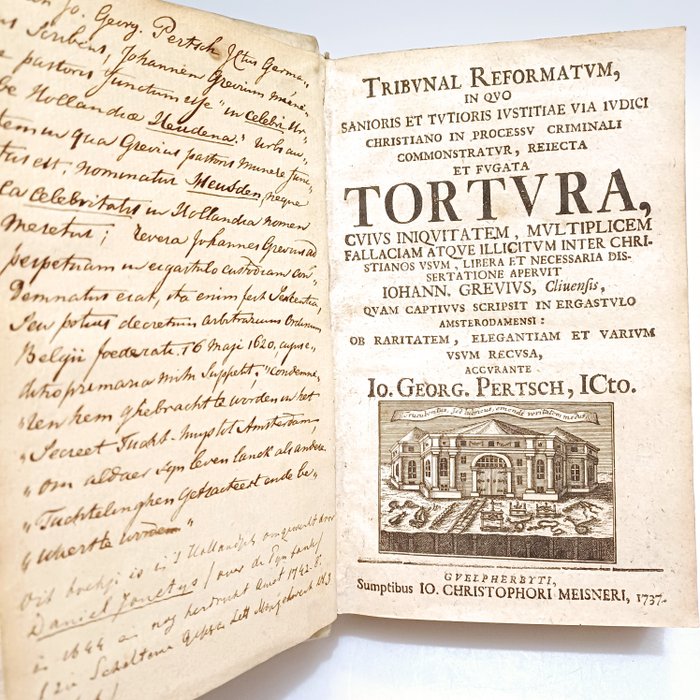 Jo. Georg. Pertsch JCtus Germa„
Scribens, Johannem Grevium
pastoris functum esse "in celebri Ur„
be Hollandiæ Heudena." Urbs au„
tem in qua Grevius pastoris munere func„
tus est, nominatur Heusden, neque
celebritatis in Hollandia nomen
meretur; revera Johannes Grevius ad
perpetuam in ergastulo custodiam con„
demnatus erat, ita enim fert Sententia,
seu potius decretum arbitrarium Ordinum
Belgii foederati 16 Maji 1620, cujus e„
ditio primaria mihi suppetit; "Condemne„
„ren hem ghebracht te worden in het
„Secreet Tucht-huys tot Amsterdam,
„om aldaer syn leven lanck als andere
„Tuchtelinghen getracteert ende be„
„waert te worden"
Dit boekje is in 't Hollandsch omgewerkt door
Daniel Jonctys / over de Pyn-bank /
in 1644 en nog herdrukt
TRIBVNAL REFORMATVM,
IN QVO
SANIORIS ET TVTIORIS IVSTITIAE VIA IVDICI
CHRISTIANO IN PROCESSV CRIMINALI
COMMONSTRATVR, REIECTA
ET FVGATA
TORTVRA,
CVIVS INIQVITATEM, MVLTIPLICEM
FALLACIAM ATQVE ILLICITVM INTER CHRI-
STIANOS VSVM, LIBERA ET NECESSARIA DIS-
SERTATIONE APERVIT
IOHANN. GREVIUS, Cliuensis,
QVAM CAPTIVVS SCRIPSIT IN ERGASTVLO
AMSTERODAMENSI:
OB RARITATEM, ELEGANTIAM ET VARIVM
VSVM RECVSA,
ACCVRANTE
IO. GEORG. PERTSCH, ICto.
GVELPHERBYTI,
Sumptibus IO. CHRISTOPHORI MEISNERI, 1737.